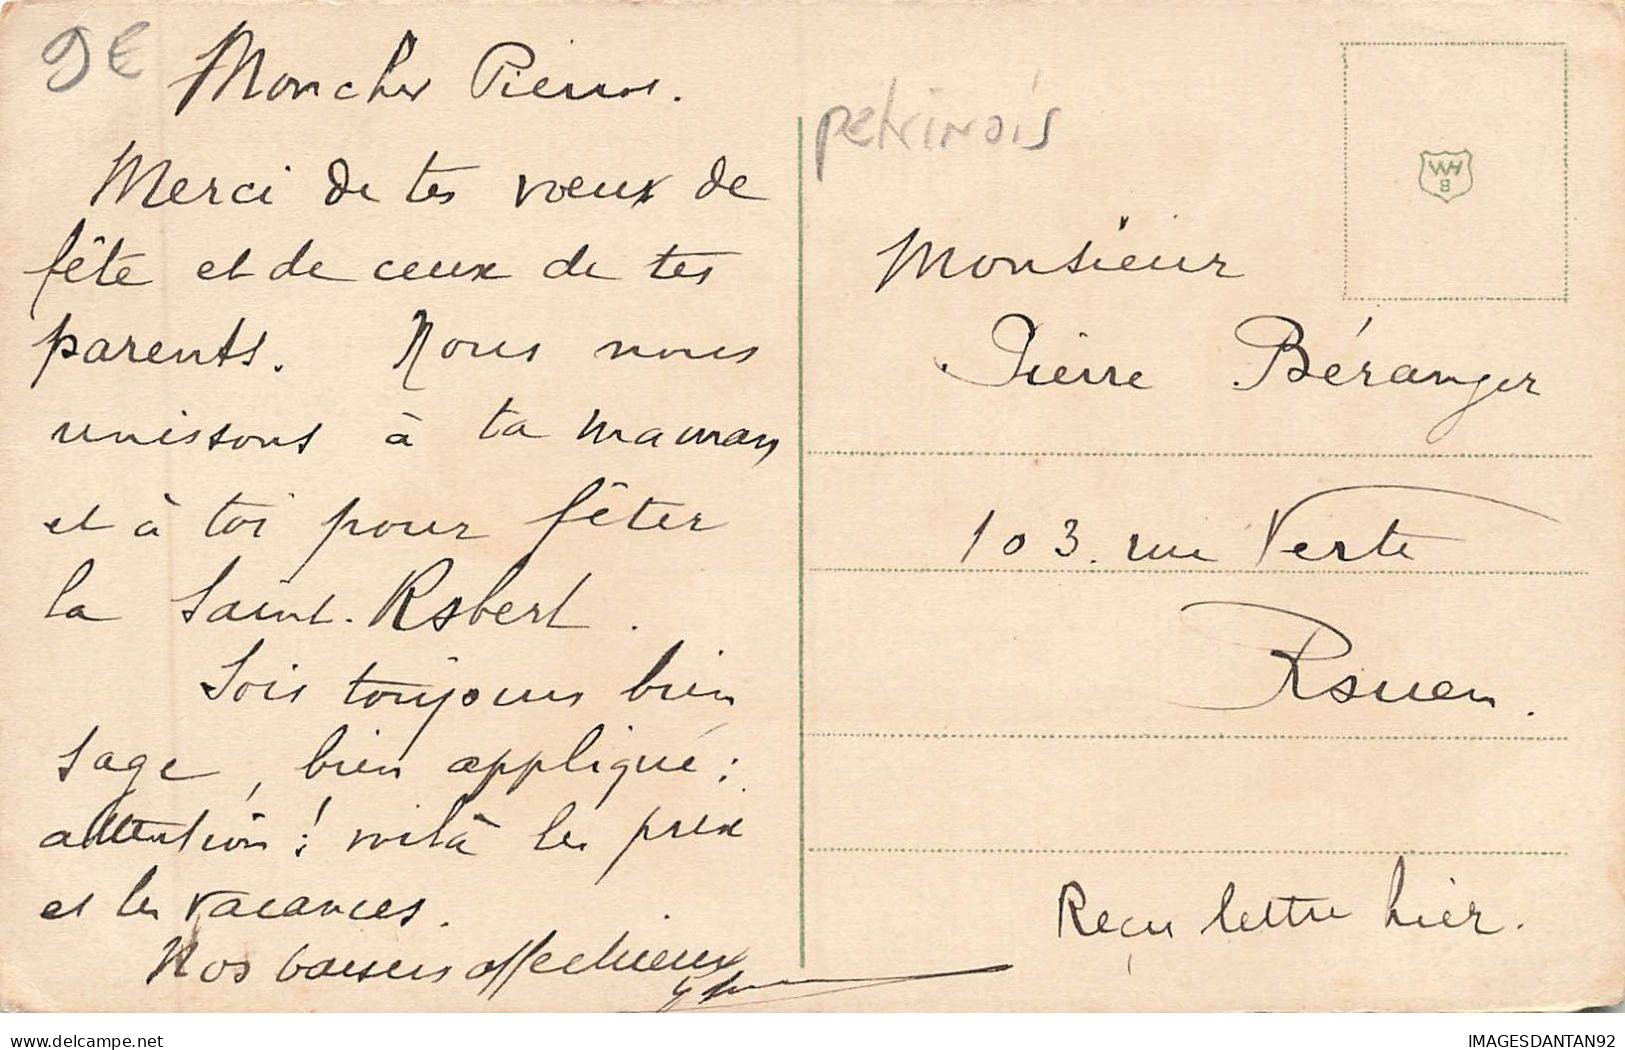 9€
Mon cher Pierre.
Merci de tes vœux de
fête et de ceux de tes
parents. Nous nous
unissons à ta maman
et à toi pour fêter
la Saint-Robert.
Sois toujours bien
sage, bien appliqué :
attention ! voilà les prix
et les vacances.
Nos baisers affectueux
petrinois
WH
B
Monsieur
Pierre Béranger
103. rue Verte
Rouen.
Reçu lettre hier.
delcampe.net
IMAGESDANTAN92